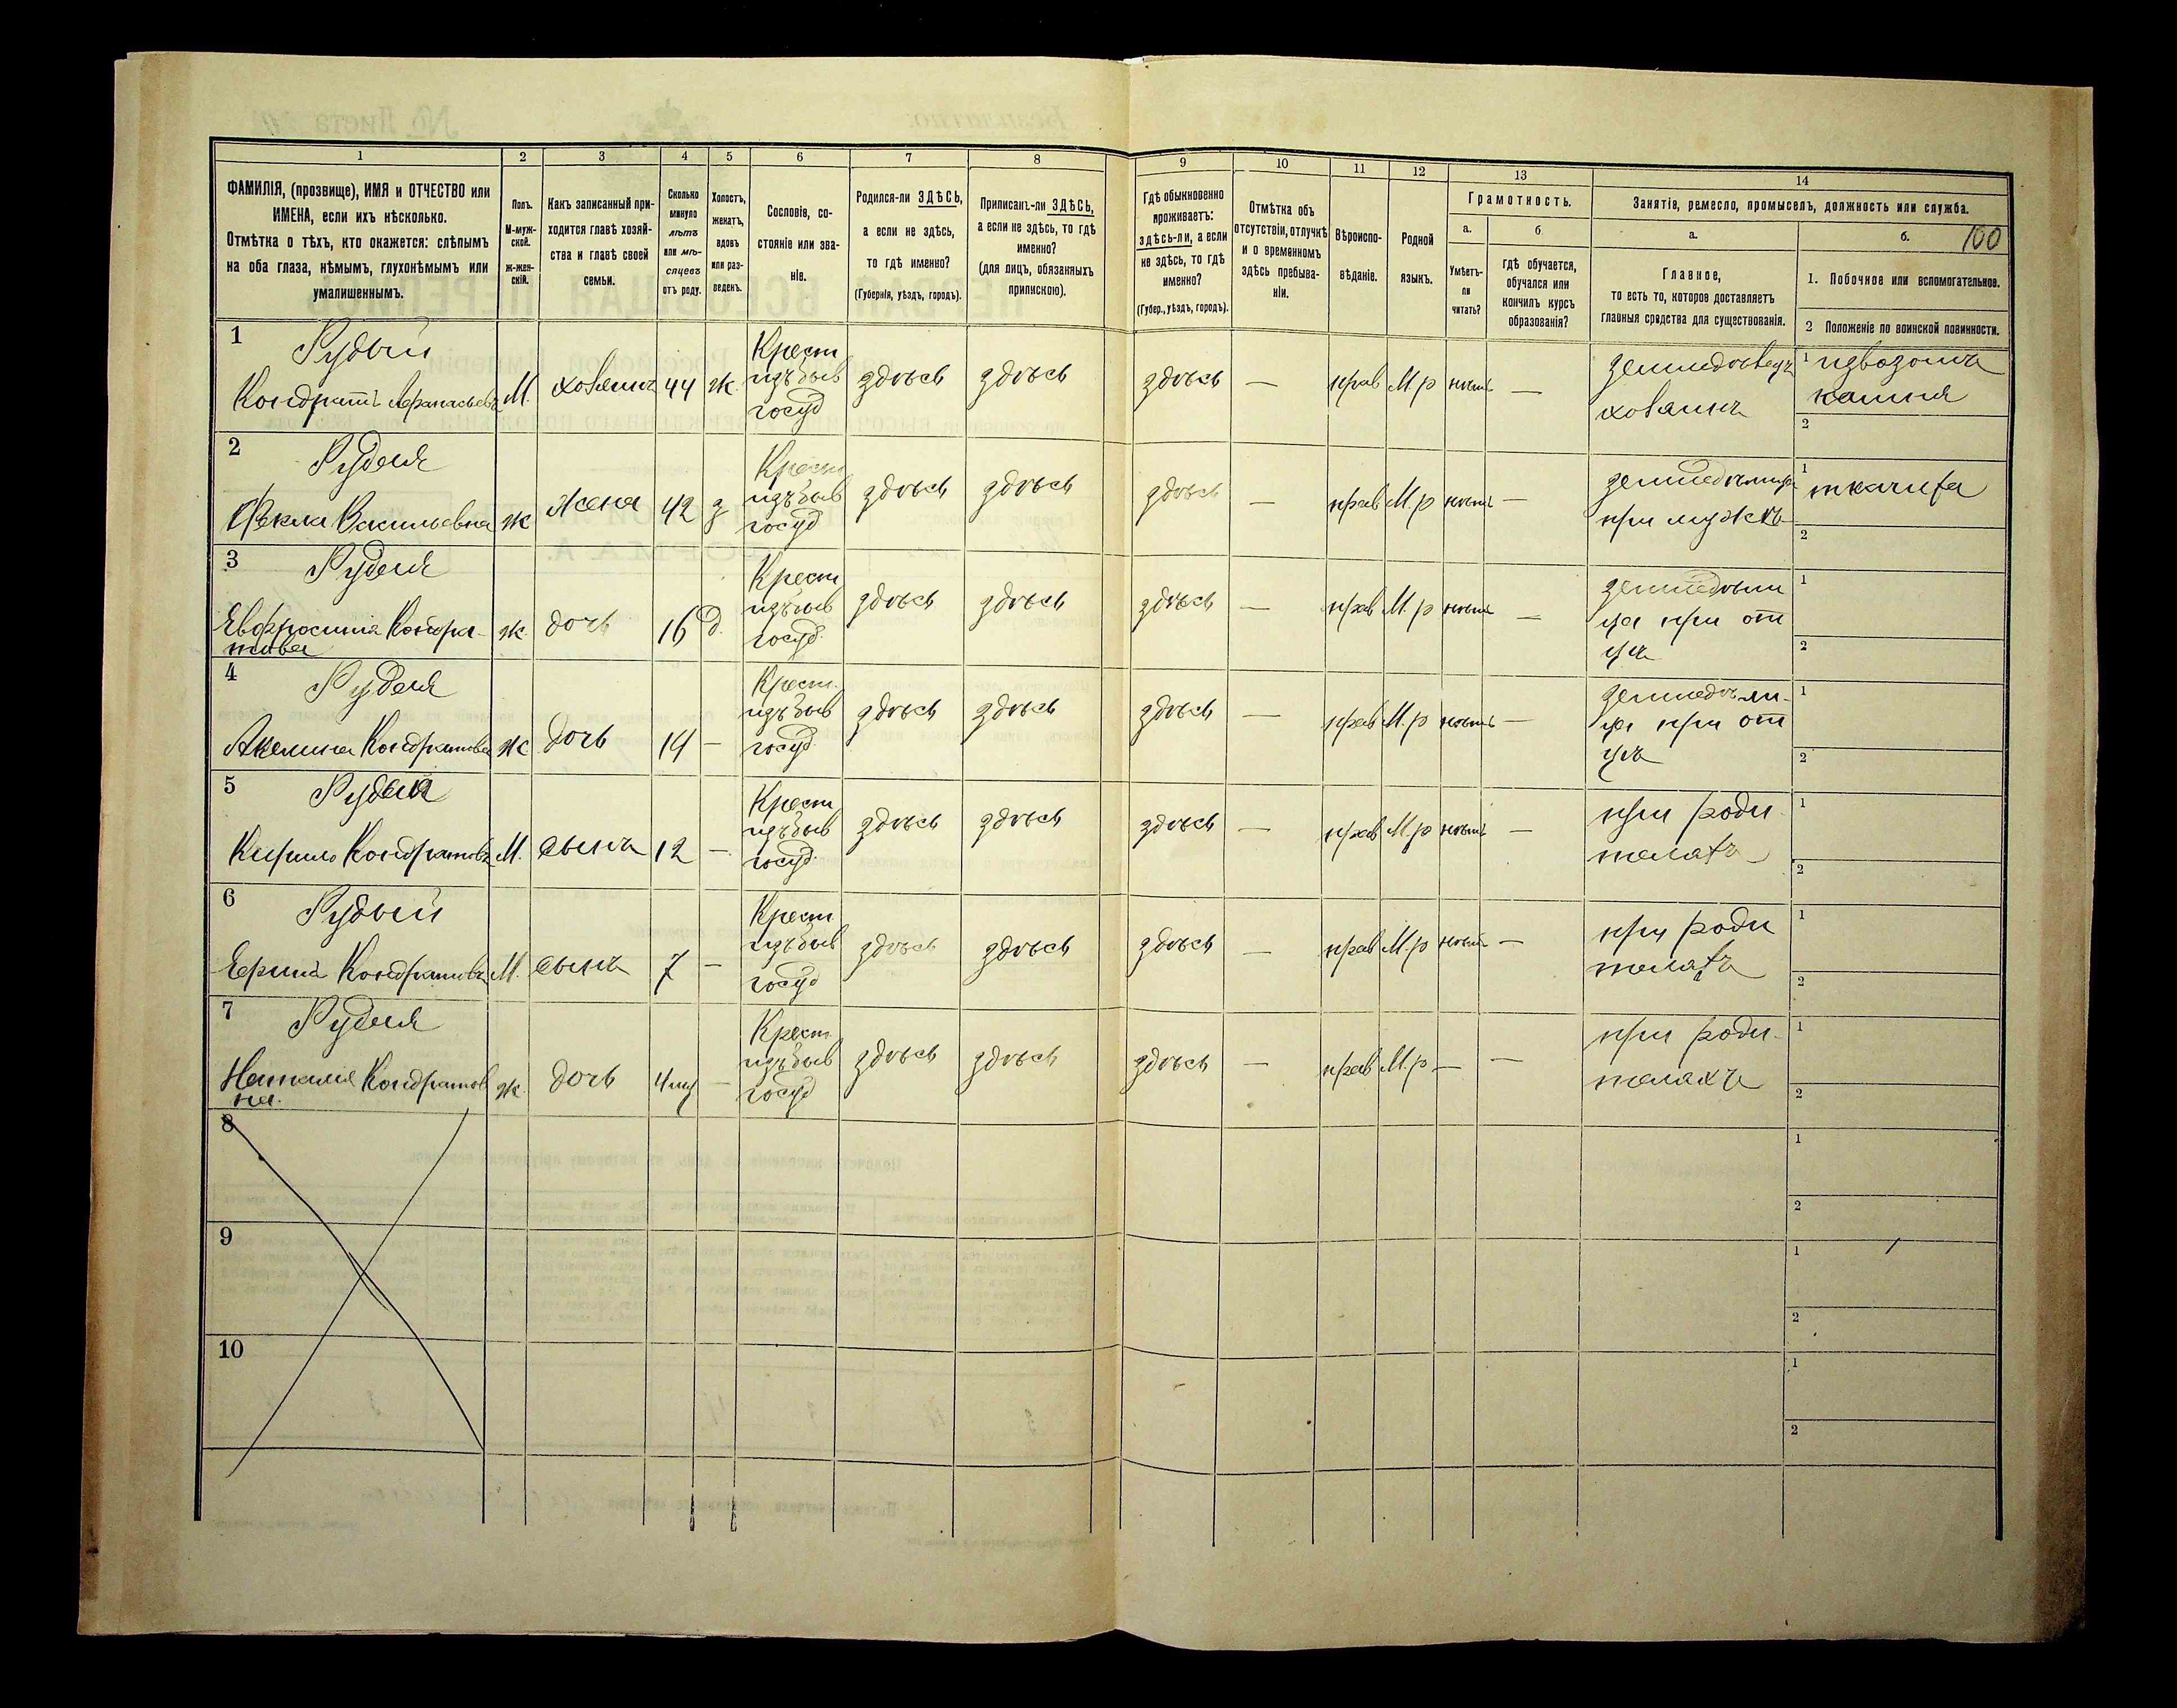 1 2 3 4 5 6 7 8 9 10 11 12 13 14
ФАМИЛІЯ, (прозвище), ИМЯ и ОТЧЕСТВО или
ИМЕНА, если ихъ нѣсколько.
Отмѣтка о тѣхъ, кто окажется: слѣпымъ
на оба глаза, нѣмымъ, глухонѣмымъ или
умалишеннымъ.
Полъ.
М-муж-
ской.
ж-жен-
скій.
Какъ записанный при-
ходится главѣ хозяй-
ства и главѣ своей
семьи.
Сколько
минуло
лѣтъ
или мѣ-
сяцевъ
отъ роду.
Холостъ,
женатъ,
вдовъ
или раз-
веденъ.
Сословіе, со-
стояніе или зва-
ніе.
Родился-ли ЗДѢСЬ,
а если не здѣсь,
то гдѣ именно?
(Губернія, уѣздъ, городъ).
Приписанъ-ли ЗДѢСЬ,
а если не здѣсь, то гдѣ
именно?
(для лицъ, обязанныхъ
припискою).
Гдѣ обыкновенно
проживаетъ:
здѣсь-ли, а если
не здѣсь, то гдѣ
именно?
(Губер., уѣздъ, городъ).
Отмѣтка объ
отсутствіи, отлучкѣ
и о временномъ
здѣсь пребыва-
ніи.
Вѣроиспо-
вѣданіе.
Родной
языкъ.
Грамотность.
а.
Умѣетъ-
ли
читать?
б
гдѣ обучается,
обучался или
кончилъ курсъ
образованія?
Занятіе, ремесло, промыселъ, должность или служба.
а.
Главное,
то есть то, которое доставляетъ
главныя средства для существованія.
б.
100
1. Побочное или вспомогательное.
2 Положеніе по воинской повинности.
1
Рудый
Кондратъ Афанасьевъ
М.
хозяинъ
44
ж.
Крест
изъ быв
госуд
здѣсь
здѣсь
здѣсь
—
прав
М.р
нѣтъ
—
земледѣлецъ
хозяинъ
1 извозомъ
камня
2
2
Рудая
Фекла Васильевна
ж
жена
42
з
Крест
изъ быв
госуд
здѣсь
здѣсь
здѣсь
—
прав
М.р
нѣтъ
—
при мужѣ
1 ткачиха
2
3
Рудая
Евфросинія Кондра-
това
ж.
дочь
16
д.
Крест
изъ быв
госуд.
здѣсь
здѣсь
здѣсь
—
прав
М.р
нѣтъ
—
ца при от
цѣ
1
2
4
Рудая
Акелина Кондратова
ж
дочь
14
—
Крест.
изъ быв
госуд.
здѣсь
здѣсь
здѣсь
—
прав
М.р
нѣтъ
—
земледѣли-
ца при от
цѣ
1
2
5
Рудый
Кирило Кондратовъ
М.
сынъ
12
—
Крест
изъ быв
госуд.
здѣсь
здѣсь
здѣсь
—
прав
М.р
нѣтъ
—
при роди-
теляхъ
1
2
6
Рудый
Кондратовъ
М.
сынъ
7
—
Крест
изъ быв
госуд
здѣсь
здѣсь
здѣсь
—
прав
М.р
нѣтъ
—
при роди
теляхъ
1
2
7
Рудая
Наталия Кондратов
на.
ж.
дочь
—
Крест
изъ быв
госуд
здѣсь
здѣсь
здѣсь
—
прав
М.р
—
—
при роди-
теляхъ
1
2
8
1
2
9
1
2
10
1
2